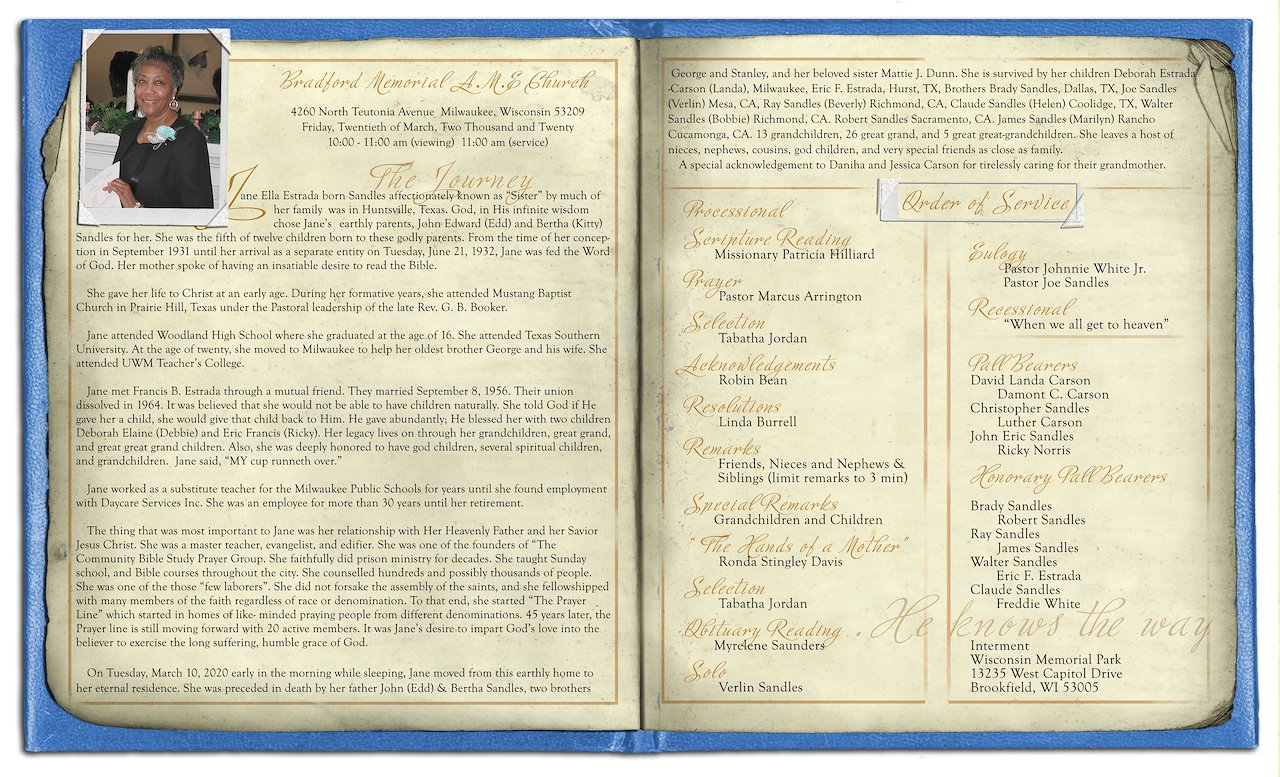 Bradford Memorial A.M.E Church
4260 North Teutonia Avenue  Milwaukee, Wisconsin 53209
Friday, Twentieth of March, Two Thousand and Twenty
10:00 - 11:00 am (viewing)  11:00 am (service)
The Journey
Jane Ella Estrada born Sandles affectionately known as "Sister" by much of
her family  was in Huntsville, Texas. God, in His infinite wisdom
chose Jane's  earthly parents, John Edward (Edd) and Bertha (Kitty)
Sandles for her. She was the fifth of twelve children born to these godly parents. From the time of her concep-
tion in September 1931 until her arrival as a separate entity on Tuesday, June 21, 1932, Jane was fed the Word
of God. Her mother spoke of having an insatiable desire to read the Bible.
She gave her life to Christ at an early age. During her formative years, she attended Mustang Baptist
Church in Prairie Hill, Texas under the Pastoral leadership of the late Rev. G. B. Booker.
Jane attended Woodland High School where she graduated at the age of 16. She attended Texas Southern
University. At the age of twenty, she moved to Milwaukee to help her oldest brother George and his wife. She
attended UWM Teacher's College.
Jane met Francis B. Estrada through a mutual friend. They married September 8, 1956. Their union
dissolved in 1964. It was believed that she would not be able to have children naturally. She told God if He
gave her a child, she would give that child back to Him. He gave abundantly; He blessed her with two children
Deborah Elaine (Debbie) and Eric Francis (Ricky). Her legacy lives on through her grandchildren, great grand,
and great great grand children. Also, she was deeply honored to have god children, several spiritual children,
and grandchildren.  Jane said, "MY cup runneth over."
Jane worked as a substitute teacher for the Milwaukee Public Schools for years until she found employment
with Daycare Services Inc. She was an employee for more than 30 years until her retirement.
The thing that was most important to Jane was her relationship with Her Heavenly Father and her Savior
Jesus Christ. She was a master teacher, evangelist, and edifier. She was one of the founders of "The
Community Bible Study Prayer Group. She faithfully did prison ministry for decades. She taught Sunday
school, and Bible courses throughout the city. She counselled hundreds and possibly thousands of people.
She was one of those "few laborers". She did not forsake the assembly of the saints, and she fellowshipped
with many members of the faith regardless of race or denomination. To that end, she started "The Prayer
Line" which started in homes of like- minded praying people from different denominations. 45 years later, the
Prayer line is still moving forward with 20 active members. It was Jane's desire to impart God's love into the
believer to exercise the long suffering, humble grace of God.
On Tuesday, March 10, 2020 early in the morning while sleeping, Jane moved from this earthly home to
her eternal residence. She was preceded in death by her father John (Edd) & Bertha Sandles, two brothers
George and Stanley, and her beloved sister Mattie J. Dunn. She is survived by her children Deborah Estrada
-Carson (Landa), Milwaukee, Eric F. Estrada, Hurst, TX, Brothers Brady Sandles, Dallas, TX, Joe Sandles
(Verlin) Mesa, CA, Ray Sandles (Beverly) Richmond, CA, Claude Sandles (Helen) Coolidge, TX, Walter
Sandles (Bobbie) Richmond, CA. Robert Sandles Sacramento, CA. James Sandles (Marilyn) Rancho
Cucamonga, CA. 13 grandchildren, 26 great grand, and 5 great great-grandchildren. She leaves a host of
nieces, nephews, cousins, god children, and very special friends as close as family.
A special acknowledgement to Daniha and Jessica Carson for tirelessly caring for their grandmother.
Order of Service
Processional
Scripture Reading
Missionary Patricia Hilliard
Prayer
Pastor Marcus Arrington
Selection
Tabatha Jordan
Acknowledgements
Robin Bean
Resolutions
Linda Burrell
Remarks
Friends, Nieces and Nephews &
Siblings (limit remarks to 3 min)
Special Remarks
Grandchildren and Children
" The Hands of a Mother"
Ronda Stingley Davis
Selection
Tabatha Jordan
Obituary Reading
Myrelene Saunders
Solo
Verlin Sandles
Eulogy
Pastor Johnnie White Jr.
Pastor Joe Sandles
Recessional
"When we all get to heaven"
Pall Bearers
David Landa Carson
Damont C. Carson
Christopher Sandles
Luther Carson
John Eric Sandles
Ricky Norris
Honorary Pall Bearers
Brady Sandles
Robert Sandles
Ray Sandles
James Sandles
Walter Sandles
Eric F. Estrada
Claude Sandles
Freddie White
. He knows the way
Interment
Wisconsin Memorial Park
13235 West Capitol Drive
Brookfield, WI 53005